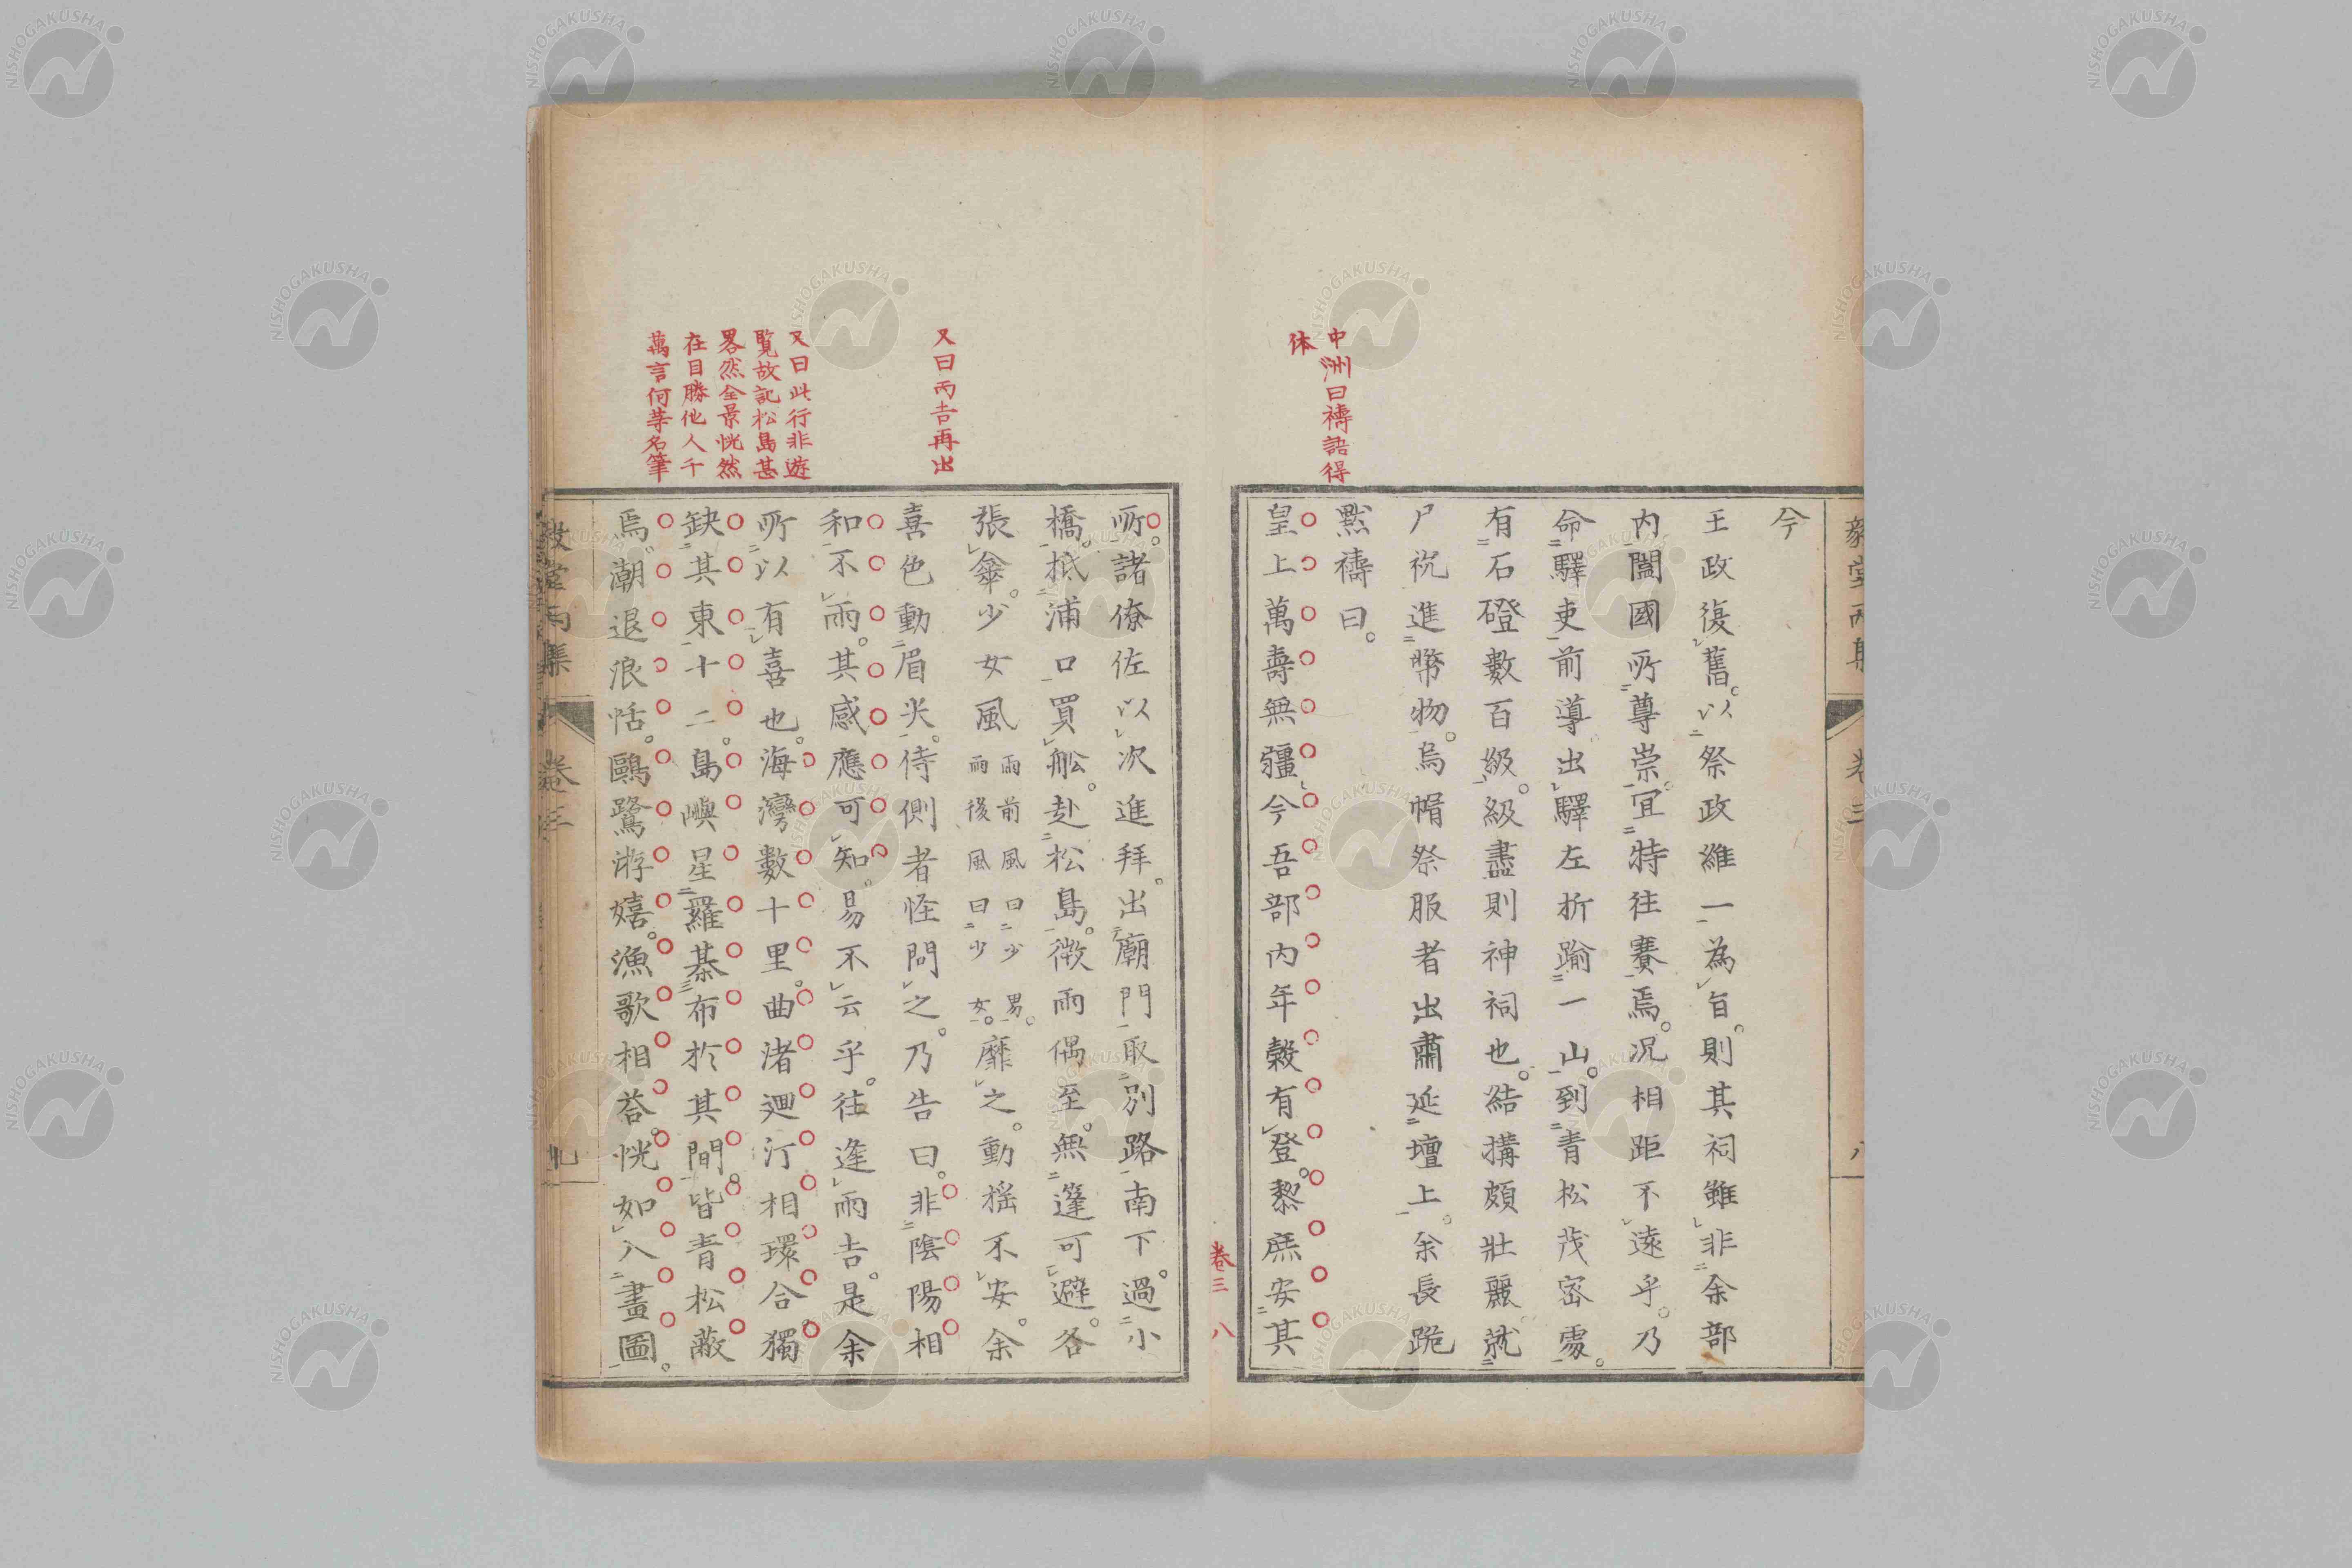 今
王政復舊。以祭政維一為旨。則其祠雖非余部
内闔國所尊崇。宜特往賽焉。况相距不遠乎。乃
命驛吏前導出驛左折踰一山。到青松茂密處。
有石磴數百級。級盡則神祠也。結搆頗壯麗就
尸祝進幣物。烏帽祭服者出肅延壇上。余長跪
黙禱曰。
皇上萬壽無疆。今吾部内年穀有登。黎庶安其
中洲曰禱語得
体
卷三 八
所。諸僚佐以次進拜。出廟門取別路南下。過小
橋。抵浦口買舩。赴松島。微雨偶至。無篷可避。各
張傘。少女風
雨前風曰少男。
雨後風曰少女。
靡之。動揺不安。余
喜色動眉尖。侍側者怪問之。乃告曰。非陰陽相
和不雨。其感應可知。易不云乎。往逢雨吉。是余
所以有喜也。海灣數十里。曲渚廻汀相環合。獨
缺其東十二。島嶼星羅棊布於其間。皆青松蔽
焉。潮退浪恬。鷗鷺游嬉。漁歌相荅。恍如八畫圖。
又曰雨吉再出
又曰此行非遊
覧故記松島甚
畧然全景恍然
在目勝他人千
萬言何等名筆
卷三
NISHOGAKUSHA